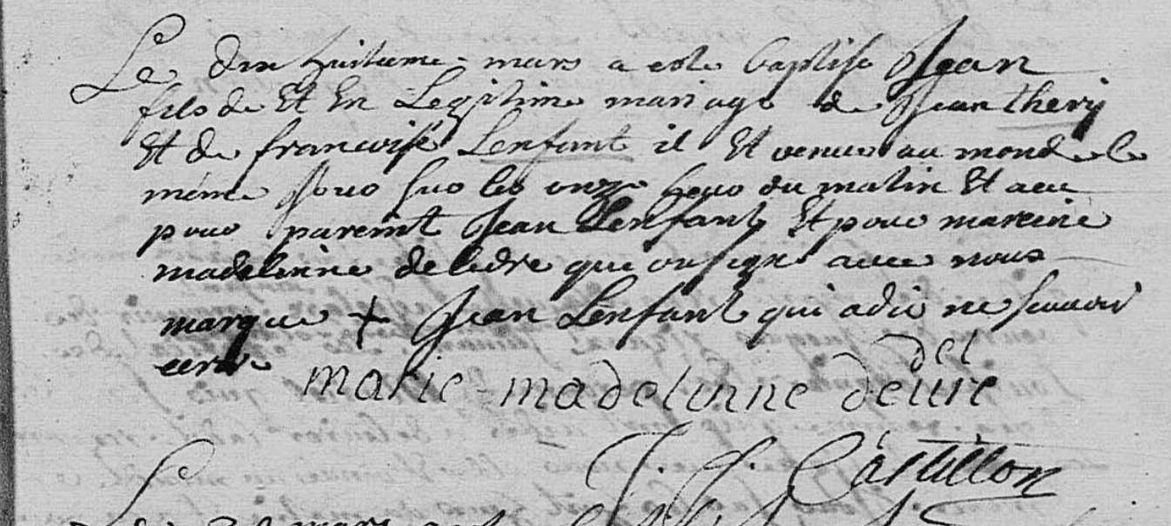 Le dix huitieme mars a este baptise Jean
fils de Et En Legitime mariage de Jean thery
Et de francoise Lenfant il Et venue au monde le
méme jour sur les onze heur du matin Et a eu
pour pareint Jean Lenfant Et pour mareine
madelinne deledre que on signe avec nous
marque + Jean Lenfant qui a dit ne scavoir
ecrire
marie-madelinne
J. Castillon
Le mars